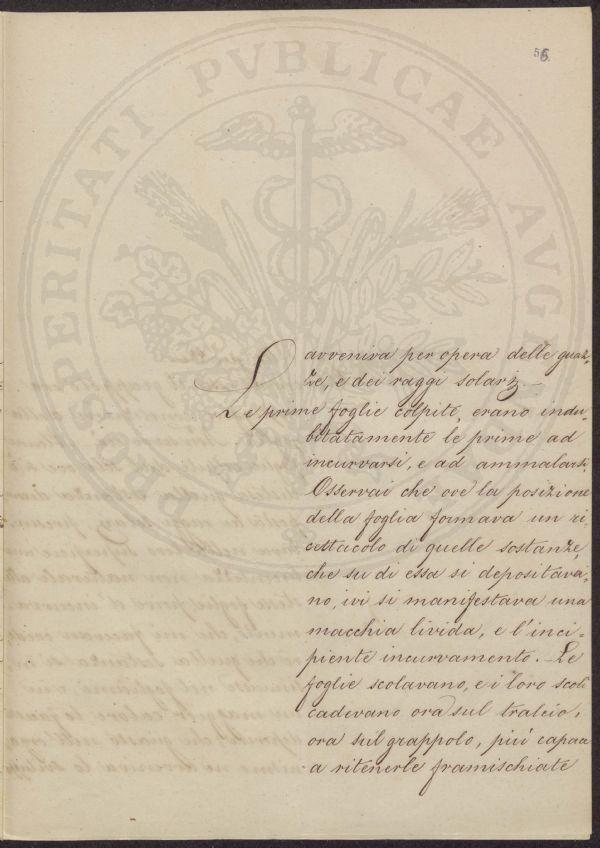 56.
PROSPERITATI PVBLICAE AVGENDAE
avveniva per opera delle guaz=
ze, e dei raggi solari. —
Le prime foglie colpite, erano indu=
bitatamente le prime ad
incurvarsi, e ad ammalarsi.
Osservai che ove la posizione
della foglia formava un ri
cettacolo di quelle sostanze,
che su di essa si depositava=
no, ivi si manifestava una
macchia livida, e l'inci=
piente incurvamento. — Le
foglie scolavano, e i loro scoli
cadevano ora sul tralcio,
ora sul grappolo, più capace
a ritenerle framischiate